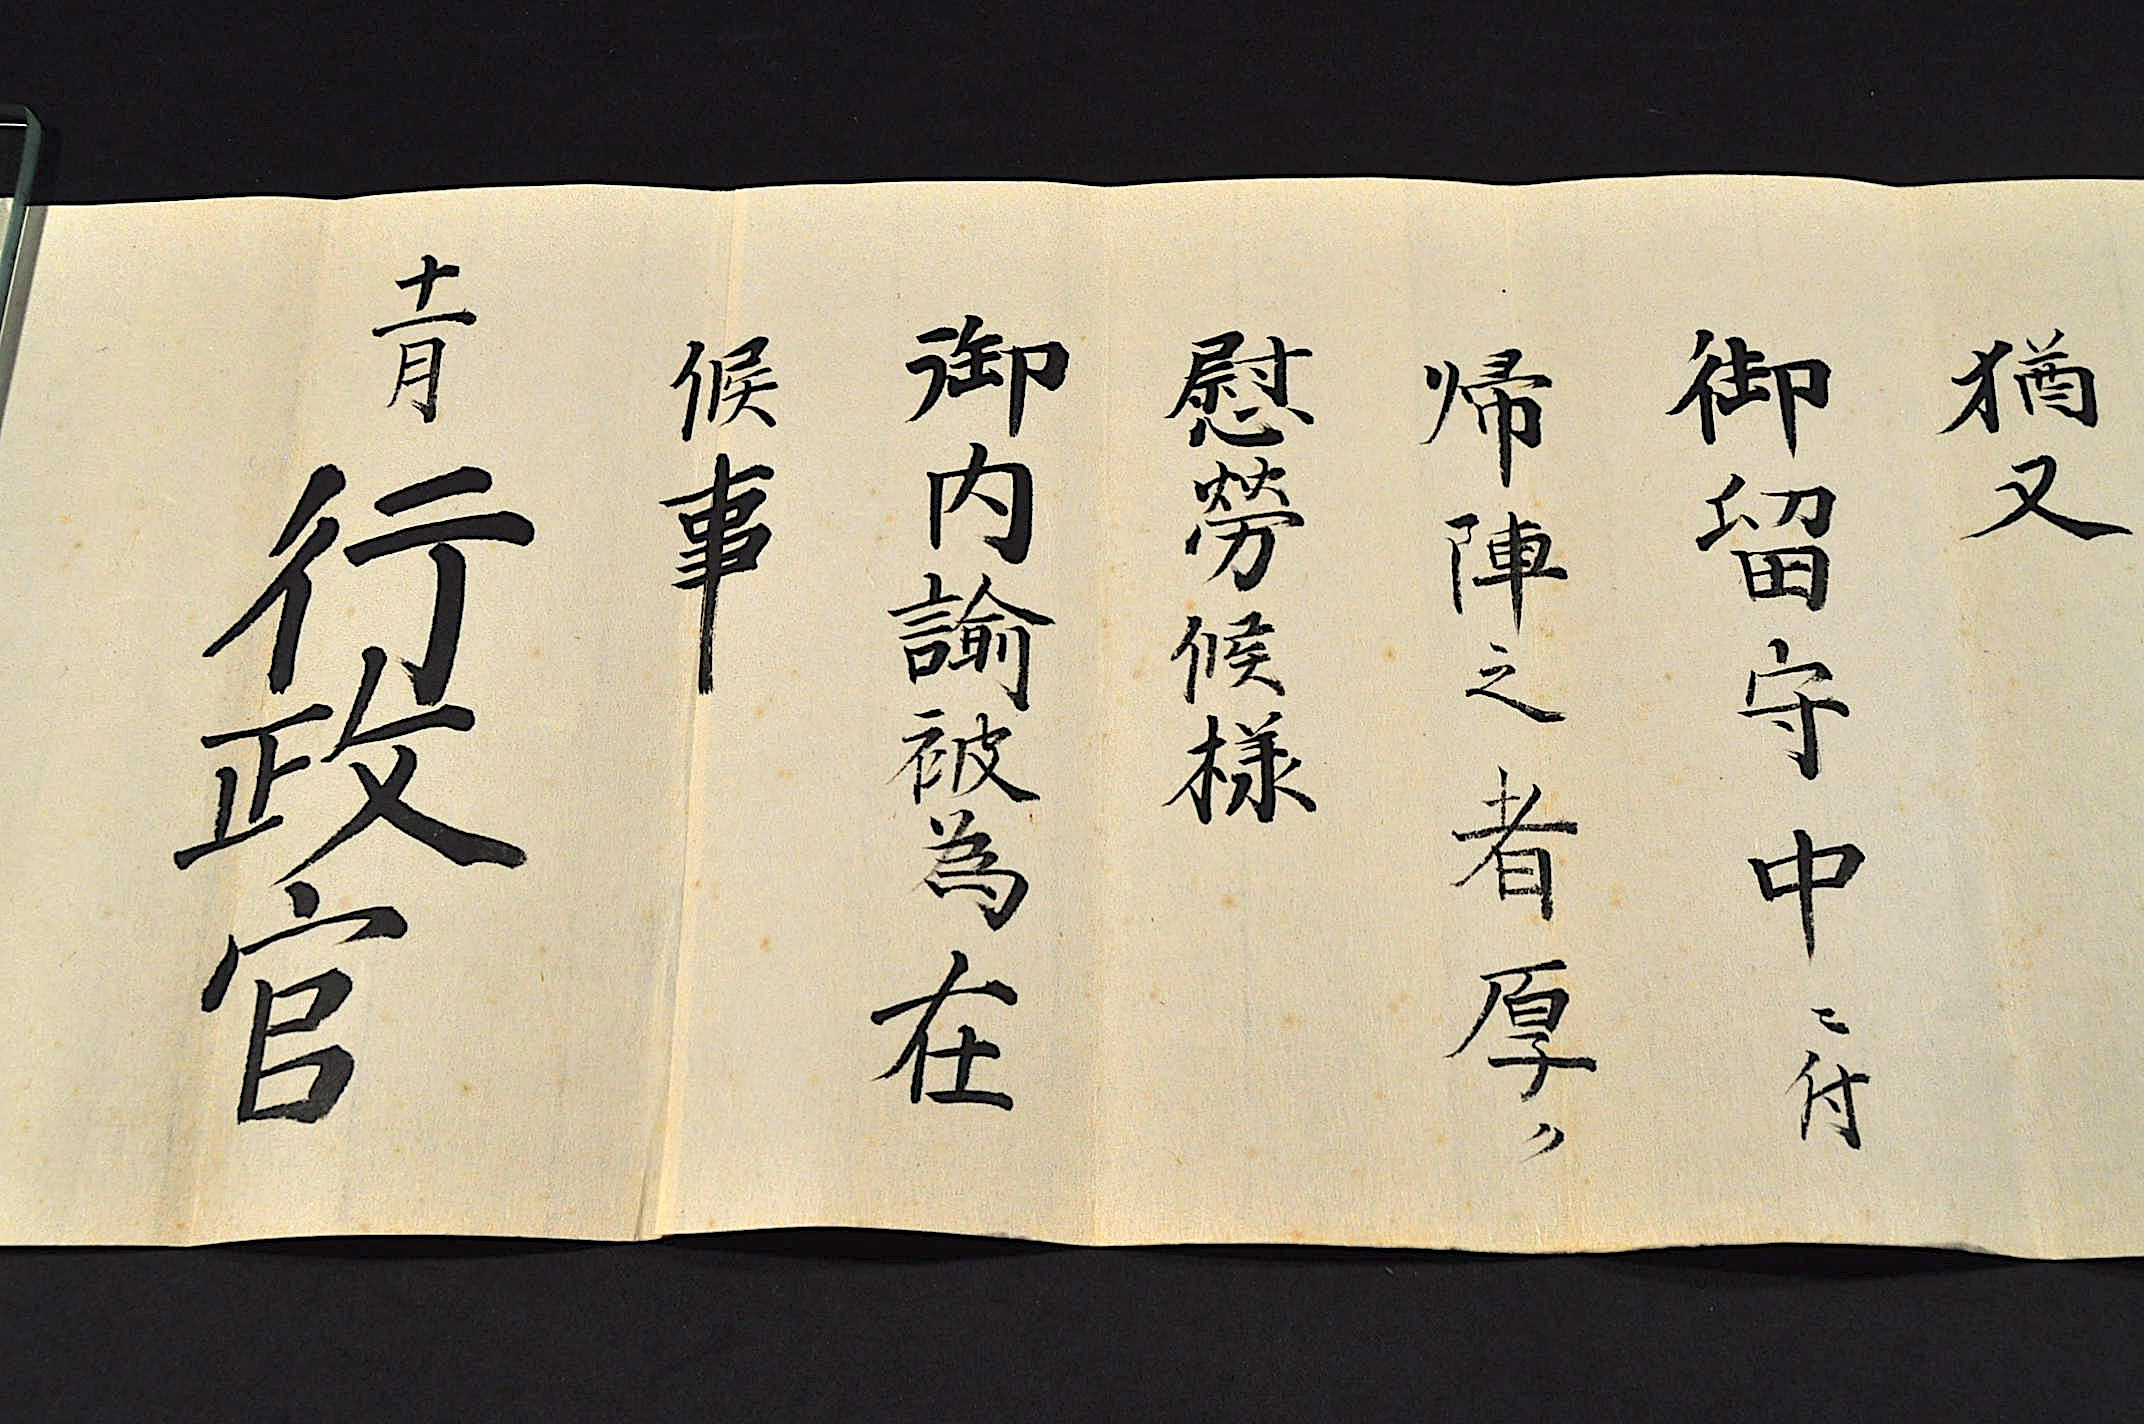 猶又
御留守中ニ付
帰陣之者厚ク
慰勞候様
御内諭被為在
候事
十一月
行政官